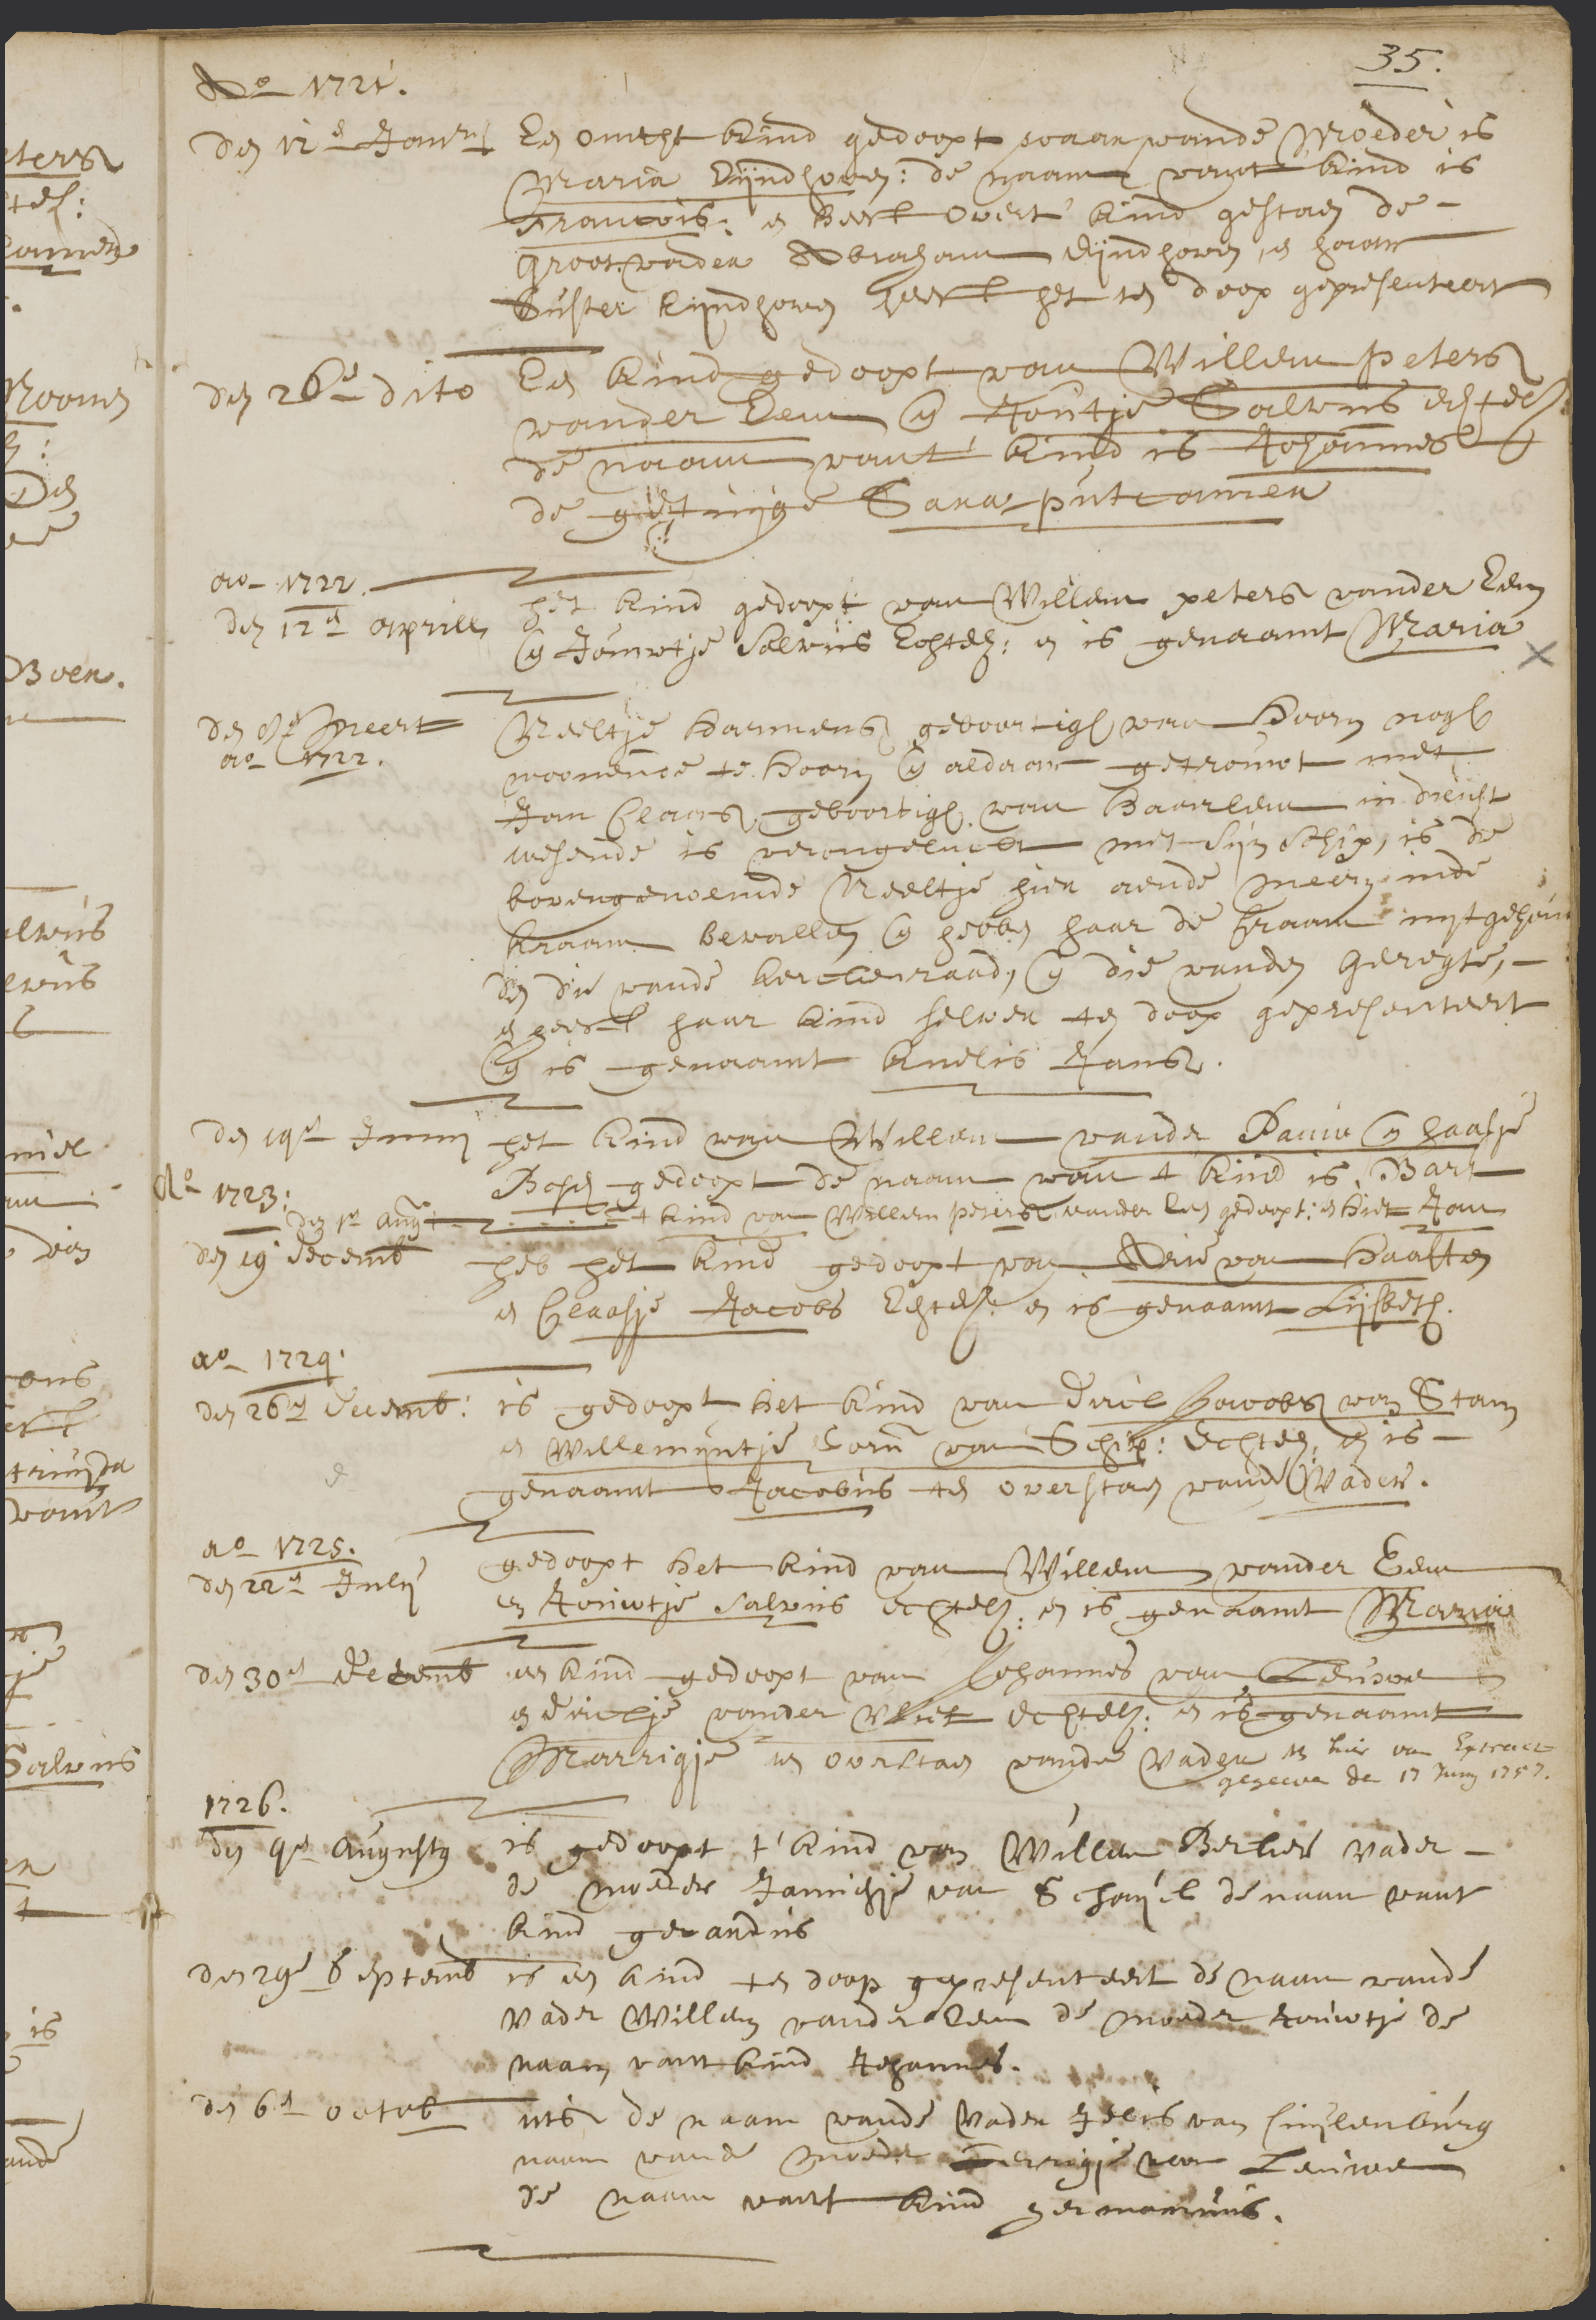 35.
Ao 1721.
den 12e Janrij Een onecht kind gedoopt waar vande Moeder is
Maria Eijndhoven: de naam vant kind is
Francois: en heeft overt kind gestaen de
groot vader Abraham Eijndhoven, en haar
Suster Eijndhoven heeft het ten doop gepresenteert
den 26e dito Een kind gedoopt van Willem peters
vander Eem en Joutje Salvus echtel:
de naam vant kind is Johannes
de getuijge Sara putcamer
ao 1722.
den 12e aprill het kind gedoopt van Willem peters vander Eem
en Jouwtje Salvus Echtel: en is genaamt Maria
den 8e Meert Neeltje Harmens geboortigh van Hoorn nogh
ao 1722. woonende te Hoorn en aldaar getrouwt met
Jan Claas geboortigh van Haarlem in dienst
wesende is verongeluckt met sijn schip, is de
bovengenoemde Neeltje hier aende meern inde
kraam bevallen en hebben haar de kraam uijtgehou
den die vande kerckenraad, en die vanden Geregte,
en heeft haar kind selver ten doop gepresenteert
en is genaamt knelis Jans.
den 19e Junij het kind van Willem vander Pauw en haasje
Bosch gedoopt de naam van t kind is Bart
Ao 1723:
den 1e augt t kind van Willem peters vander Eem gedoopt: en hiet Jan
den 19 decemb heb het kind gedoopt van Arie van Haaften
en Claasje Jacobs Echtel: en is genaamt Lijsbeth.
ao 1724.
den 26e decemb: is gedoopt het kind van Dirck Jacobs van Stam
en Willemijntje Corn van Schip: Echtel, en is
genaamt Jacobus ten overstaen vande Vader.
ao 1725.
den 22e Julij gedoopt het kind van Willem vander Eem
en Jouwtje Salvus echtel: en is genaamt Maria
den 30e decemb een kind gedoopt van Johannes van Leuwe
en dirckje vander Vliet echtel: en is genaamt
Marrigje ten overstaen vande Vader is hier van Extract
gegeeve den 17 Juny 1757.
1726.
den 9e Augusty is gedoopt t'kind van Willem Berlier vader
de moeder Jannichje van Schaijck de naam vant
kind gerardus
den 29e Septemb is een kind ten doop gepresenteert de naam vande
Vader Willem vander Eem de moeder Jouwtje de
naam vant kind Johannes.
den 6e octob uts de naam vande Vader Jelis van Cuijlenburg
naam vande moeder Merrigje van Leuwe
de naam vant kind germannus.